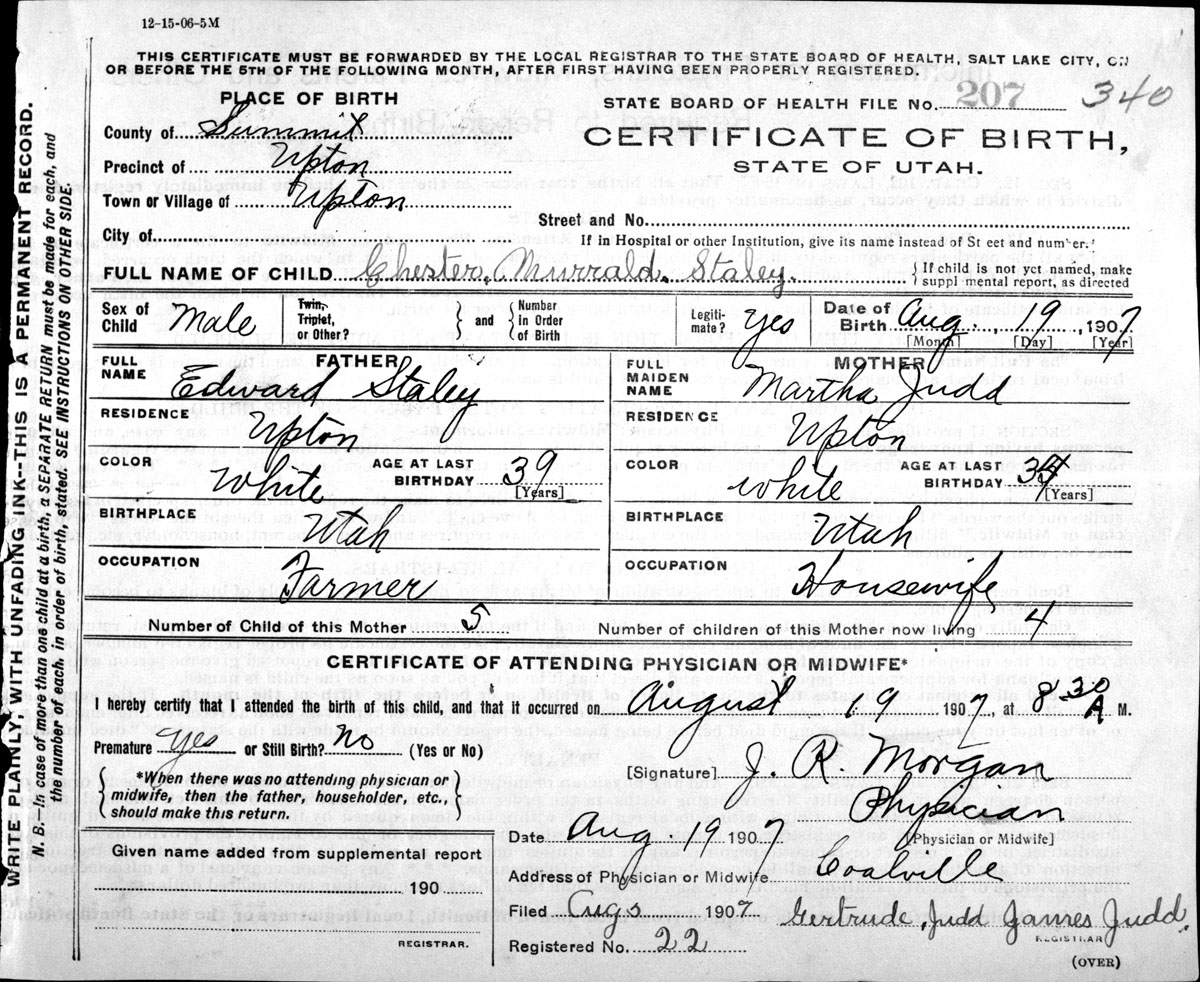 12-15-06-5M
THIS CERTIFICATE MUST BE FORWARDED BY THE LOCAL REGISTRAR TO THE STATE BOARD OF HEALTH, SALT LAKE CITY, ON
OR BEFORE THE 5TH OF THE FOLLOWING MONTH, AFTER FIRST HAVING BEEN PROPERLY REGISTERED.
PLACE OF BIRTH
STATE BOARD OF HEALTH FILE No. 207 340
County of Summit
CERTIFICATE OF BIRTH,
Precinct of Upton
STATE OF UTAH.
Town or Village of Upton
Street and No.
City of
If in Hospital or other Institution, give its name instead of St eet and number.
FULL NAME OF CHILD Chester Murrald Staley { If child is not yet named, make
suppl mental report, as directed
Sex of Child Male
Twin, Triplet, or Other? } and { Number in Order of Birth
Legiti-mate? Yes
Date of Birth Aug. 19, 1907
[Month] [Day] [Year]
FATHER
FULL NAME Edward Staley
RESIDENCE Upton
COLOR White
AGE AT LAST BIRTHDAY 39 [Years]
BIRTHPLACE Utah
OCCUPATION Farmer
MOTHER
FULL MAIDEN NAME Martha Judd
RESIDENCE Upton
COLOR White
AGE AT LAST BIRTHDAY [Years]
BIRTHPLACE Utah
OCCUPATION Housewife
Number of Child of this Mother 5 Number of children of this Mother now living 4
CERTIFICATE OF ATTENDING PHYSICIAN OR MIDWIFE*
I hereby certify that I attended the birth of this child, and that it occurred on August 19 1907, at 8 30 A M.
Premature yes or Still Birth? no (Yes or No)
{ *When there was no attending physician or
midwife, then the father, householder, etc.,
should make this return. }
[Signature] J. R. Morgan
Physician
[Physician or Midwife]
Date Aug 19 1907
Given name added from supplemental report
190
REGISTRAR.
Address of Physician or Midwife Coalville
Filed Augs 1907 Gertrude Judd James Judd
REGISTRAR
Registered No. 22
(OVER)
WRITE PLAINLY, WITH UNFADING INK--THIS IS A PERMANENT RECORD.
N. B.—In case of more than one child at a birth, a SEPARATE RETURN must be made for each, and
the number of each, in order of birth, stated. SEE INSTRUCTIONS ON OTHER SIDE.